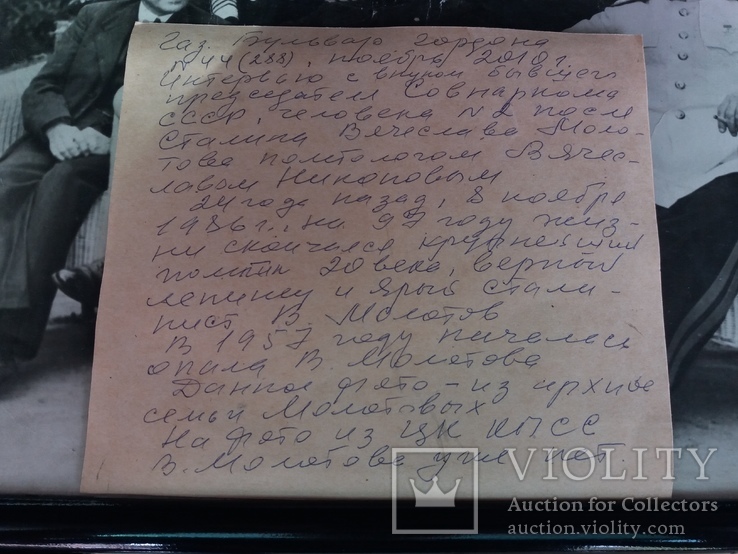 Газ. Бульвар Гордона
№44 (288), ноябрь 2010 г.
Интервью с внуком бывшего
председателя Совнаркома
СССР, человека №2 после
Сталина Вячеслава Моло-
това политологом Вячес-
лавом Никоновым
24 года назад, 8 ноября
1986 г., на 97 году жиз-
ни скончался крупнейший
политик 20 века, верный
ленинец и ярый стали-
нист В. Молотов
В 1957 году началась
опала В. Молотова
Данное фото - из архива
семьи Молотовых
На фото из ЦК КПСС
В. Молотова уже нет.
VIOLITY
Auction for Collectors
auction.violity.com